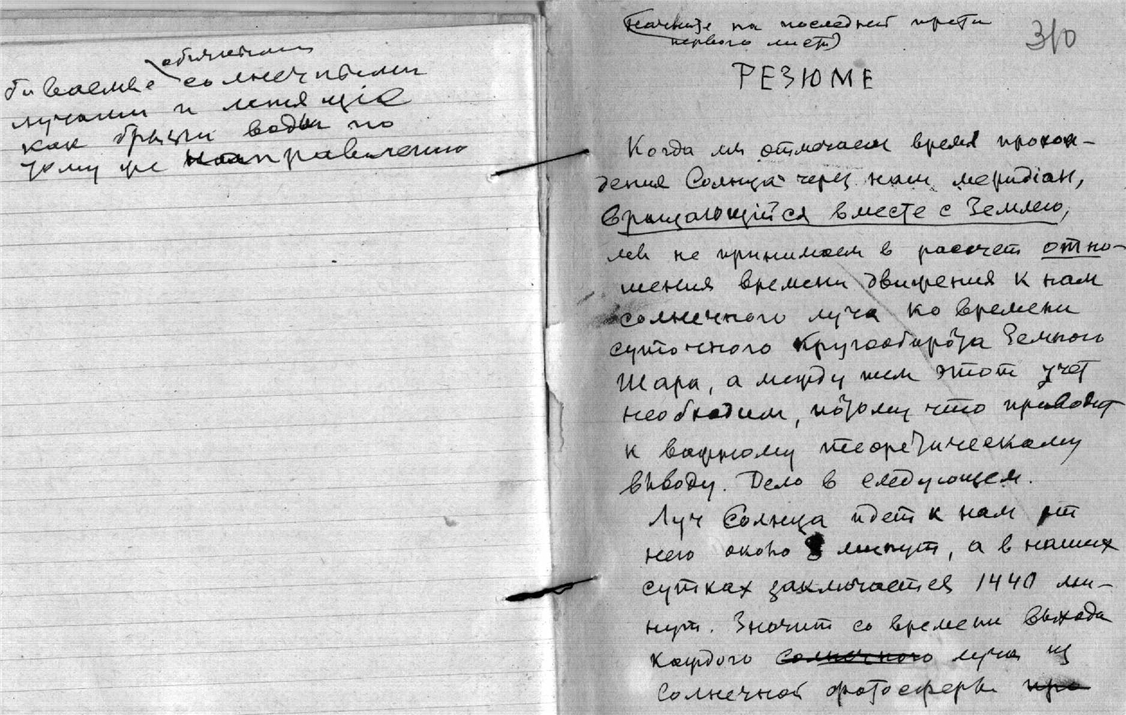 обычными
биваемые солнечными
лучами и летящие
как брызги воды по
тому же направлению
(начните на последней трети
первого листа)
310
РЕЗЮМЕ
Когда мы отмечаем время прохож-
дения Солнца через наш меридіан,
вращающійся вместе с Землею,
мы не принимаем в расчет отно-
шения времени движения к нам
солнечного луча ко времени
суточного кругооборота Земного
Шара, а между тем этот учет
необходим, потому что приводит
к важному теоретическому
выводу. Дело в следующем.
Луч Солнца идет к нам от
него около 8 минут, а в наших
сутках заключается 1440 ми-
нут. Значит со времени выхода
каждого солнечного луча из
солнечной фотосферы про